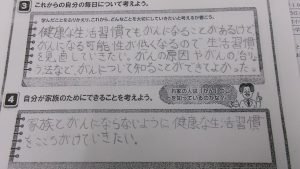 3 これからの自分の毎日について考えよう。
学んだことをふりかえり、これから、どんなことを大切にしていきたいと考えるか書こう。
健康な生活習慣でもがんになることがあるけど
がんになる可能性が低くなるので 生活習慣
を見直していきたい。がんの原因やがんの、治りょう
方法など がんについて知ることができてよかった。
4 自分が家族のためにできることを考えよう。
お家の人は「がん」のこと
を知っているのかな?
家族とがんにならないように健康な生活習慣
をこころがけていきたい。